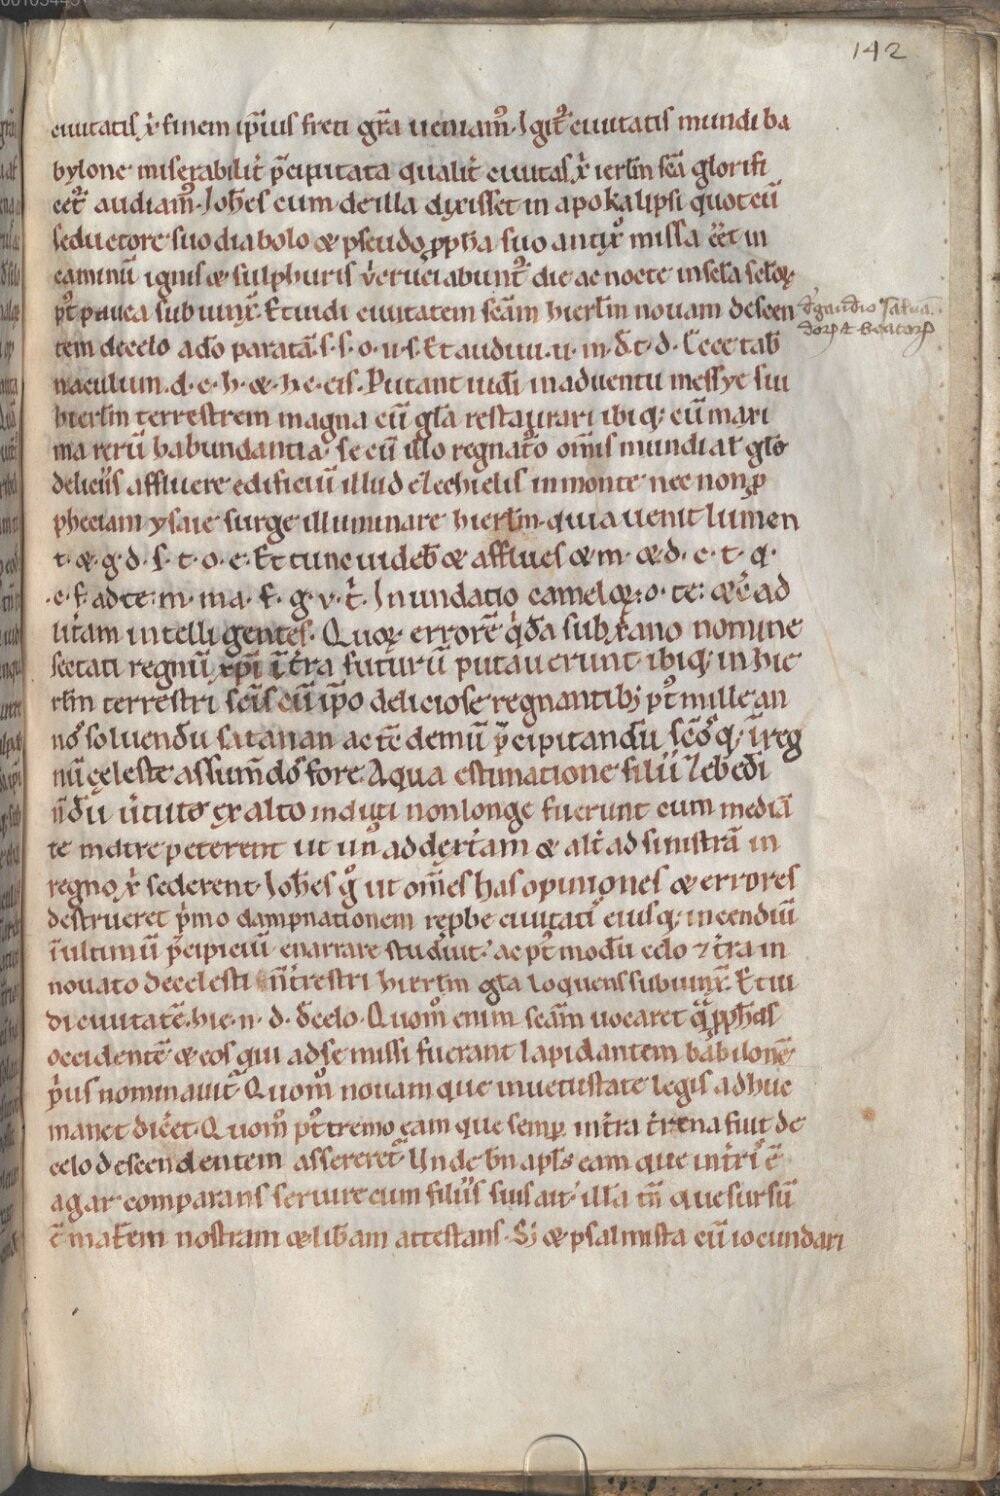 142
ciuitatis xp̄i finem ip̄ius freti gr̄a ueniam᷒. Igit᷒ ciuitatis mundi ba
bylone miserabilit᷒ p̄cipitata qualit᷒ ciuitas xp̄i ierl̄m sc̄a glorifi
cet᷒ audiam᷒. Ioh̄es cum de illa dixisset in apokalipsi quot cū
seductore suo diabolo & pseudo ꝓph̄a suo antix᷒o missa eēt in
caminū ignis & sulphuris ut cruciabunt᷒ die ac nocte in scl̄a scl̄oꝝ
p᷒t pauca subiunx̄. Et uidi ciuitatem sc̄am hierl̄m nouam descen
tem de celo a do paratā. s. s. o. u. s. Et audiui. u. m. d. t. d. Ecce tab̄
naculum. d. c. h. & h. c. eis. Putant iudi in aduentu messye sui
hierl̄m terrestrem magna cū gl̄a restaurari ibiq; cū maxi
ma rerū habundantia se cū illo regnat᷒o om̄is mundi at᷒ glo
deliciis affluere edificiū illud ezechielis in monte nec non ꝓ
pheciam ysaie surge illuminare hierl̄m. quia uenit lumen
t. & g. d. s. t. o. e. Et tunc uideb̄ & afflues & m. & d. c. t. q.
.c. f. ad te: m. ma. f. g. v. t. Inundatio cameloꝝ: o. te: & c̄ ad
litām intelligentes. Quoꝝ errorē q̄da sub x̄ano nomine
sectati regnū xp̄i ī t̄ra futurū putauerunt. ibiq; in hie
rl̄m terrestri sc̄is cū ip̄o deliciose regnantib; p᷒t mille an
nos soluendū satanan ac tē demū p̄cipitandū sc̄osq; ī reg
nū celeste assum̄dos fore. A qua estimatione filii zebedi
n̄dū u᷒tute ex alto induti non longe fuerunt cum mediā
te matre peterent ut un᷒ ad dext᷒am & alt᷒ ad sinistrā in
regno xp̄i sederent. Ioh̄es g᷒ ut om̄es has opiniones & errores
destrueret p᷒mo dampnationem rep̄be ciuitati᷒ eiusq; incendiū
ī ultimū p̄cipiciū enarrare studuit. ac p᷒t modū celo ⁊ t̄ra in
nouato de celesti n̄ t᷒restri hierl̄m gl̄a loquens subiunx̄. Et ui
di ciuitatē. hie. n. d. de celo. Quom᷒o enim sc̄am uocaret q̄ ꝓph̄as
occidentē & eos qui ad se missi fuerant lapidantem babilonē
p᷒us nominauit. Quom᷒o nouam que in uetustate legis adhuc
manet dic᷒et. Quom᷒o p᷒tremo eam que semp̄ int᷒ra t᷒rena fuit de
celo descendentem assereret. Unde bn̄ apl̄s eam que int᷒ri᷒ ē
agar comparans seruire cum filiis suis ait. illa tn̄ que sursū
ē mat᷒em nostram & lib᷒am attestans. Si & psalmista cū iocundari